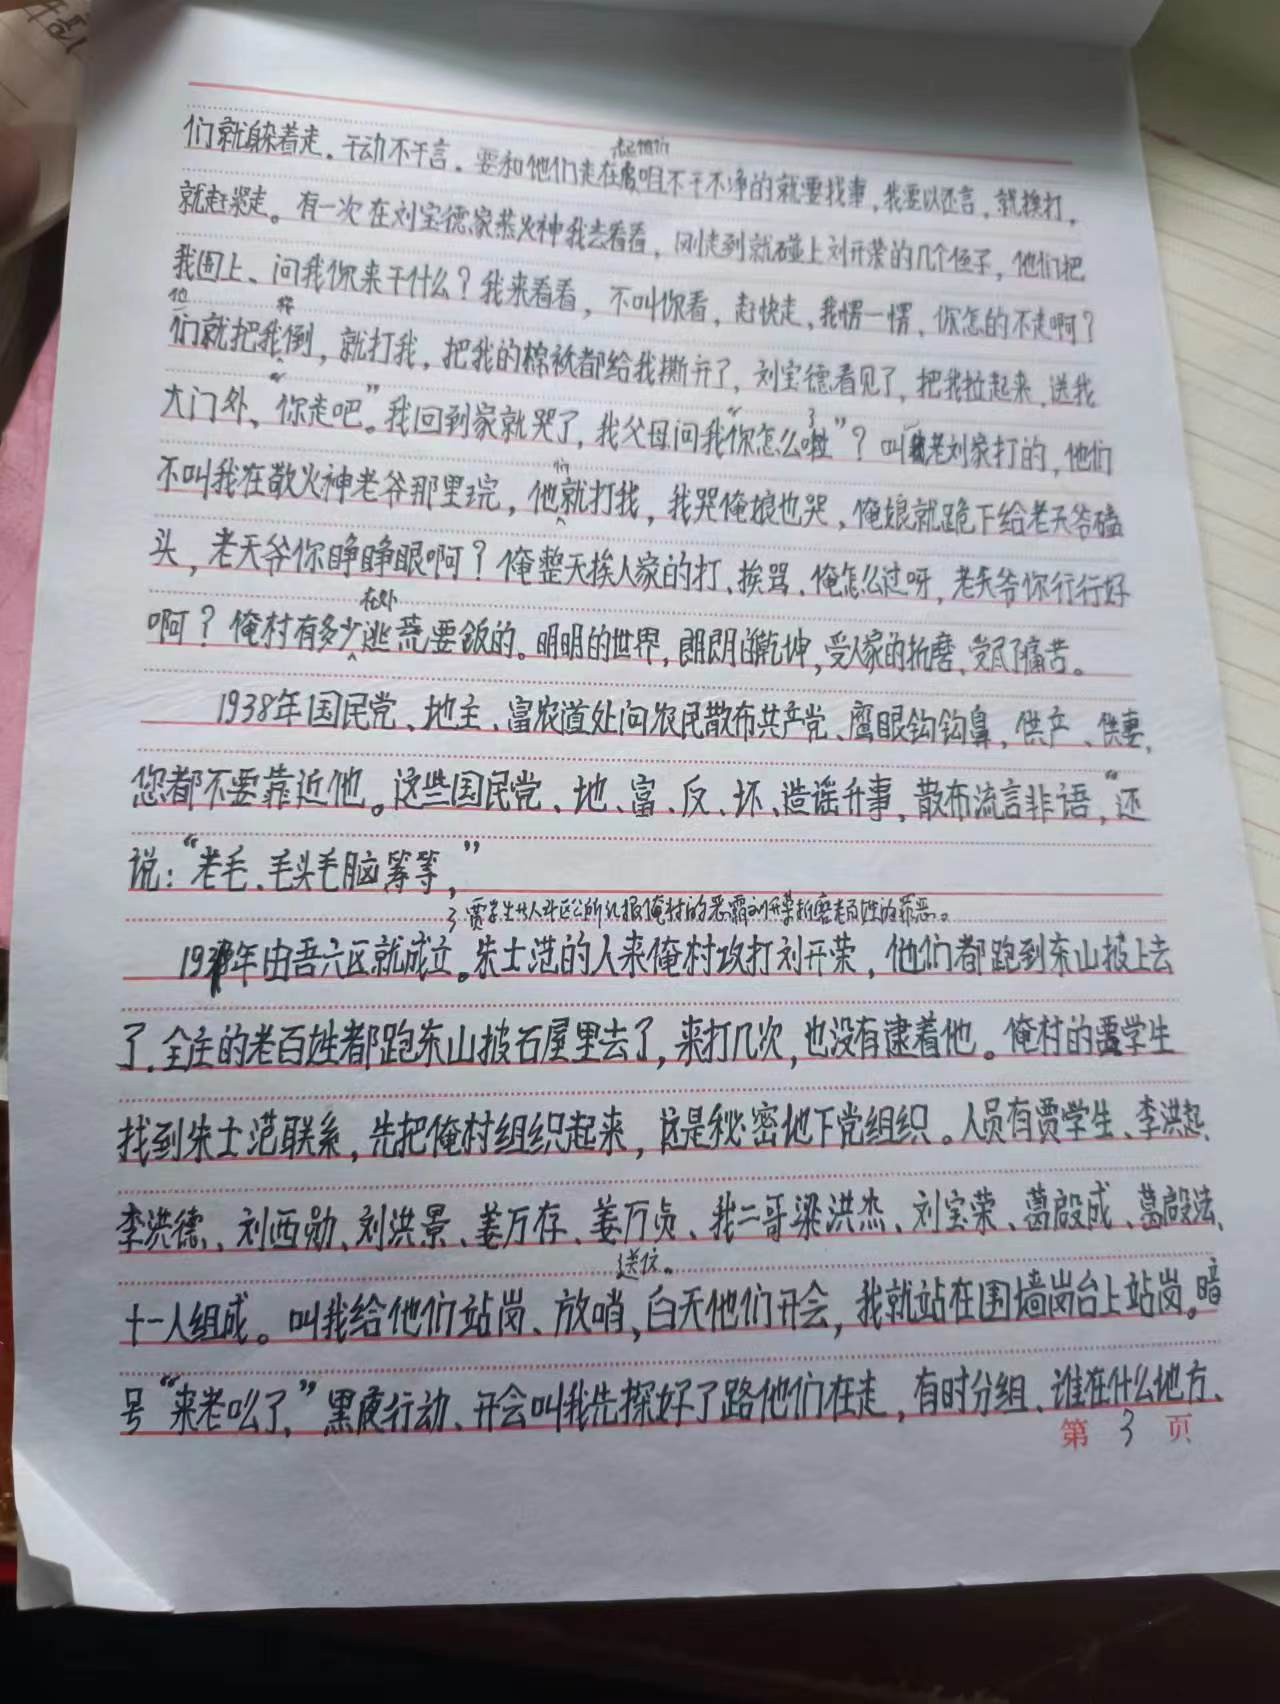 们就躲着走。干动不干言。要和他们走在一起 不干不净的就要找事,我要以还言,就挨打,
就赶紧走。有一次在刘宝德家敬火神我去看看,刚走到就碰上刘开荣的几个侄子,他们把
我围上、问我你来干什么?我来看看,不叫你看,赶快走,我愣一愣,你怎的不走啊?
他们就把我摔倒,就打我,把我的棉袄都给我撕开了,刘宝德看见了,把我拉起来,送我
大门外、“你走吧”。我回到家就哭了,我父母问我“你怎么啦”?叫老刘家打的,他们
不叫我在敬火神老爷那里玩,他们就打我,我哭俺娘也哭,俺娘就跪下给老天爷磕
头,老天爷你睁睁眼啊?俺整天挨人家的打、挨骂、俺怎么过呀,老天爷你行行好
啊?俺村有多少在外逃荒要饭的。明明的世界,朗朗的乾坤,受人家的折磨、受尽了痛苦。
1938年国民党、地主、富农道处向农民散布共产党、鹰眼钩钩鼻,供产、供妻,
您都不要靠近他。这些国民党、地、富、反、坏、造谣升事,散布流言非语,“还
说:“老毛、毛头毛脑等等,”
贾学生
19 年由吾六区就成立。朱士范的人来俺村攻打刘开荣,他们都跑到东山披上去
了。全庄的老百姓都跑东山披石屋里去了,来打几次,也没有逮着他。俺村的贾学生
找到朱士范联系,先把俺村组织起来,这是秘密地下党组织。人员有贾学生、李洪起、
李洪德、刘西勋、刘洪景、姜万存、姜万贞、我二哥梁洪杰、刘宝荣、葛啟成、葛啟法、
送信。
十一人组成。叫我给他们站岗、放哨,白天他们开会,我就站在围墙岗台上站岗。暗
号“来老么了,”黑夜行动、开会叫我先探好了路他们在走,有时分组、谁在什么地方、
第 3 页